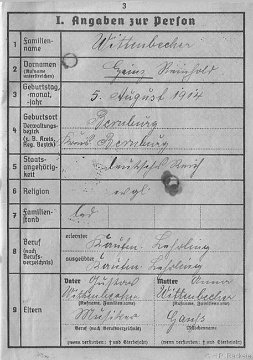 3
I. Angaben zur Person
1 Familien-
name
Wittenbecher
2 Vornamen
(Rufname
unterstreichen)
Heinz Reinhold
3 Geburtstag,
-monat,
-jahr
5. August 1914
4 Geburtsort
Verwaltungs-
bezirk
(z. B. Kreis,
Reg. Bezirk)
Bernburg
Kreis Bernburg
5 Staats-
angehörig-
keit
Reich
6 Religion
evgl
7 Familien-
stand
led
8 Beruf
(nach
Berufs-
verzeichnis)
erlernter
Kaufm. Lehrling
ausgeübter
Kaufm. Lehrling
9 Eltern
Vater Gustav
Wittenbecher
(Rufname, Familienname)
Musiker
Beruf (nach Berufsverzeichnis)
Mutter Anna
Wittenbecher
(Rufname, Familienname)
Mädchenname